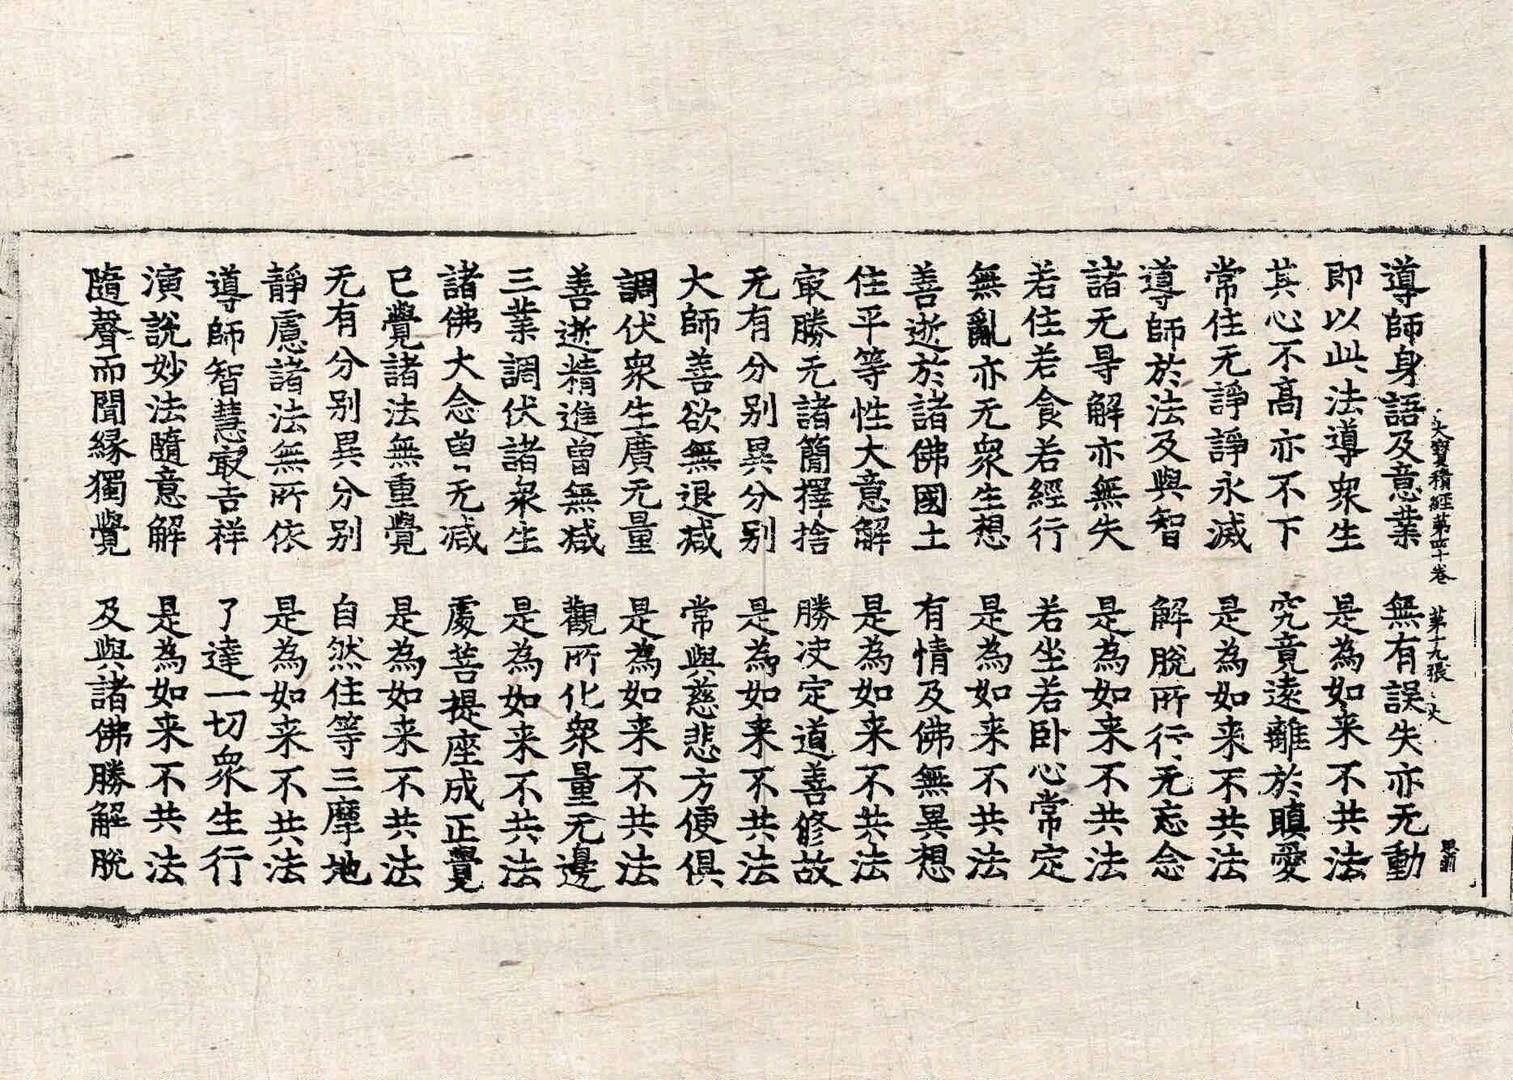 大寶積經第四十卷　第十九張　火
導師身語及意業　無有誤失亦无動
即以此法導衆生　是為如来不共法
其心不高亦不下　究竟遠離於瞋愛
常住无諍諍永滅　是為如来不共法
導師於法及與智　解脫所行无忘念
諸无㝵解亦無失　是為如来不共法
若住若食若經行　若坐若卧心常定
無亂亦无衆生想　是為如来不共法
善逝於諸佛國土　有情及佛無異想
住平等性大意解　是為如来不共法
㝡勝无諸簡擇捨　勝决定道善修故
无有分别異分别　是為如来不共法
大師善欲無退減　常與慈悲方便俱
調伏衆生廣无量　是為如来不共法
善逝精進曾無減　觀所化衆量无邊
三業調伏諸衆生　是為如来不共法
諸佛大念曾无減　處菩提座成正覺
已覺諸法無重覺　是為如来不共法
无有分别異分别　自然住等三摩地
靜慮諸法無所依　是為如来不共法
導師智慧㝡吉祥　了達一切衆生行
演說妙法隨意解　是為如来不共法
隨聲而聞緣獨覺　及與諸佛勝解脫